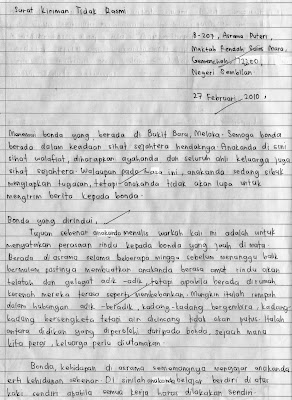 Surat Kiriman Tidak Rasmi
B-207, Asrama Puteri,
Maktab Rendah Sains Mara,
Gemencheh, 73200,
Negeri Sembilan
27 Februari 2010.
Menemui bonda yang berada di Bukit Baru, Melaka. Semoga bonda
berada dalam keadaan sihat sejahtera hendaknya. Anakanda di sini
sihat walafiat, diharapkan ayahanda dan seluruh ahli keluarga juga
sihat sejahtera. Walaupun pada masa ini, anakanda sedang sibuk
menyiapkan tugasan, tetapi anakanda tidak akan lupa untuk
mengirim berita kepada bonda.
Bonda yang dirindui,
Tujuan sebenar anakanda menulis warkah kali ini adalah untuk
menyatakan perasaan rindu kepada bonda yang jauh di mata.
Berada di asrama selama beberapa minggu sebelum menunggu balik
bermalam pastinya membuatkan anakanda berasa amat rindu akan
telatah dan gelagat adik-adik, tetapi apabila berada dirumah
karenah mereka terasa seperti membebankan. Mungkin itulah rempah
dalam hubungan adik-beradik, kadang-kadang bergembira, kadang
kadang bersengketa tetapi air dicincang tidak akan putus. Itulah
antara didikan yang diperolehi daripada bonda, sejauh mana
kita pergi, keluarga perlu diutamakan.
Bonda, kehidupan di asrama sememangnya mengajar anakanda
erti kehidupan sebenar. Di sinilah anakanda belajar berdiri di atas
kaki sendiri apabila semua kerja harus dilakukan sendiri.